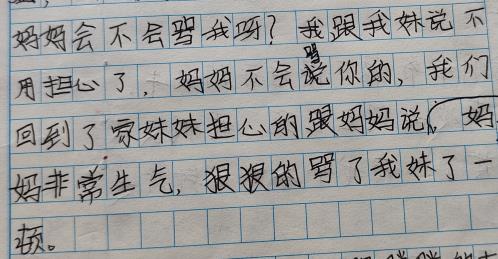 妈妈会不会骂我呀?我跟我妹说不
用担心了,妈妈不会骂你的,我们
回到了家妹妹担心的跟妈妈说,妈
妈非常生气,狠狠的骂了我妹了一
顿。